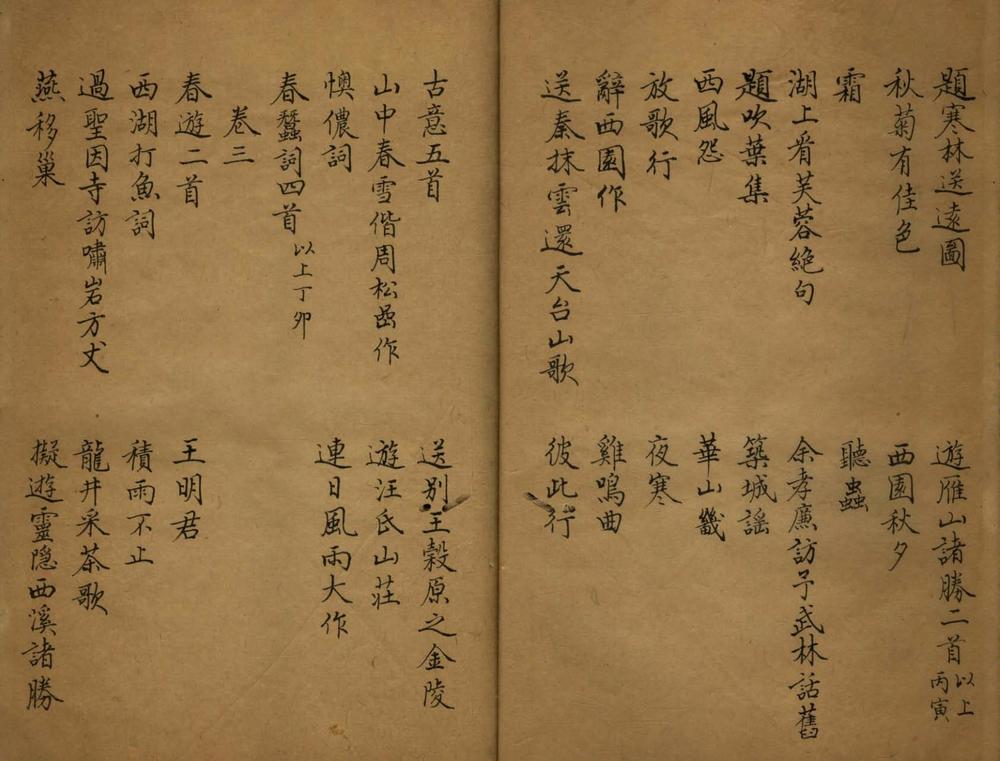 題寒林送遠圖　遊雁山諸勝二首以上丙寅
秋菊有佳色　西園秋夕
霜　聽蟲
湖上看芙蓉絕句　余孝廉訪予武林話舊
題吹葉集　築城謠
西風怨　華山畿
放歌行　夜寒
辭西園作　雞鳴曲
送秦抹雲還天台山歌　彼此行
古意五首　送别王穀原之金陵
山中春雪偕周松嵒作　遊汪氏山莊
懊儂詞　連日風雨大作
春蠶詞四首以上丁卯
卷三
春遊二首　王明君
西湖打魚詞　積雨不止
過聖因寺訪嘯岩方丈　龍井采茶歌
燕移巢　擬遊靈隱西溪諸勝